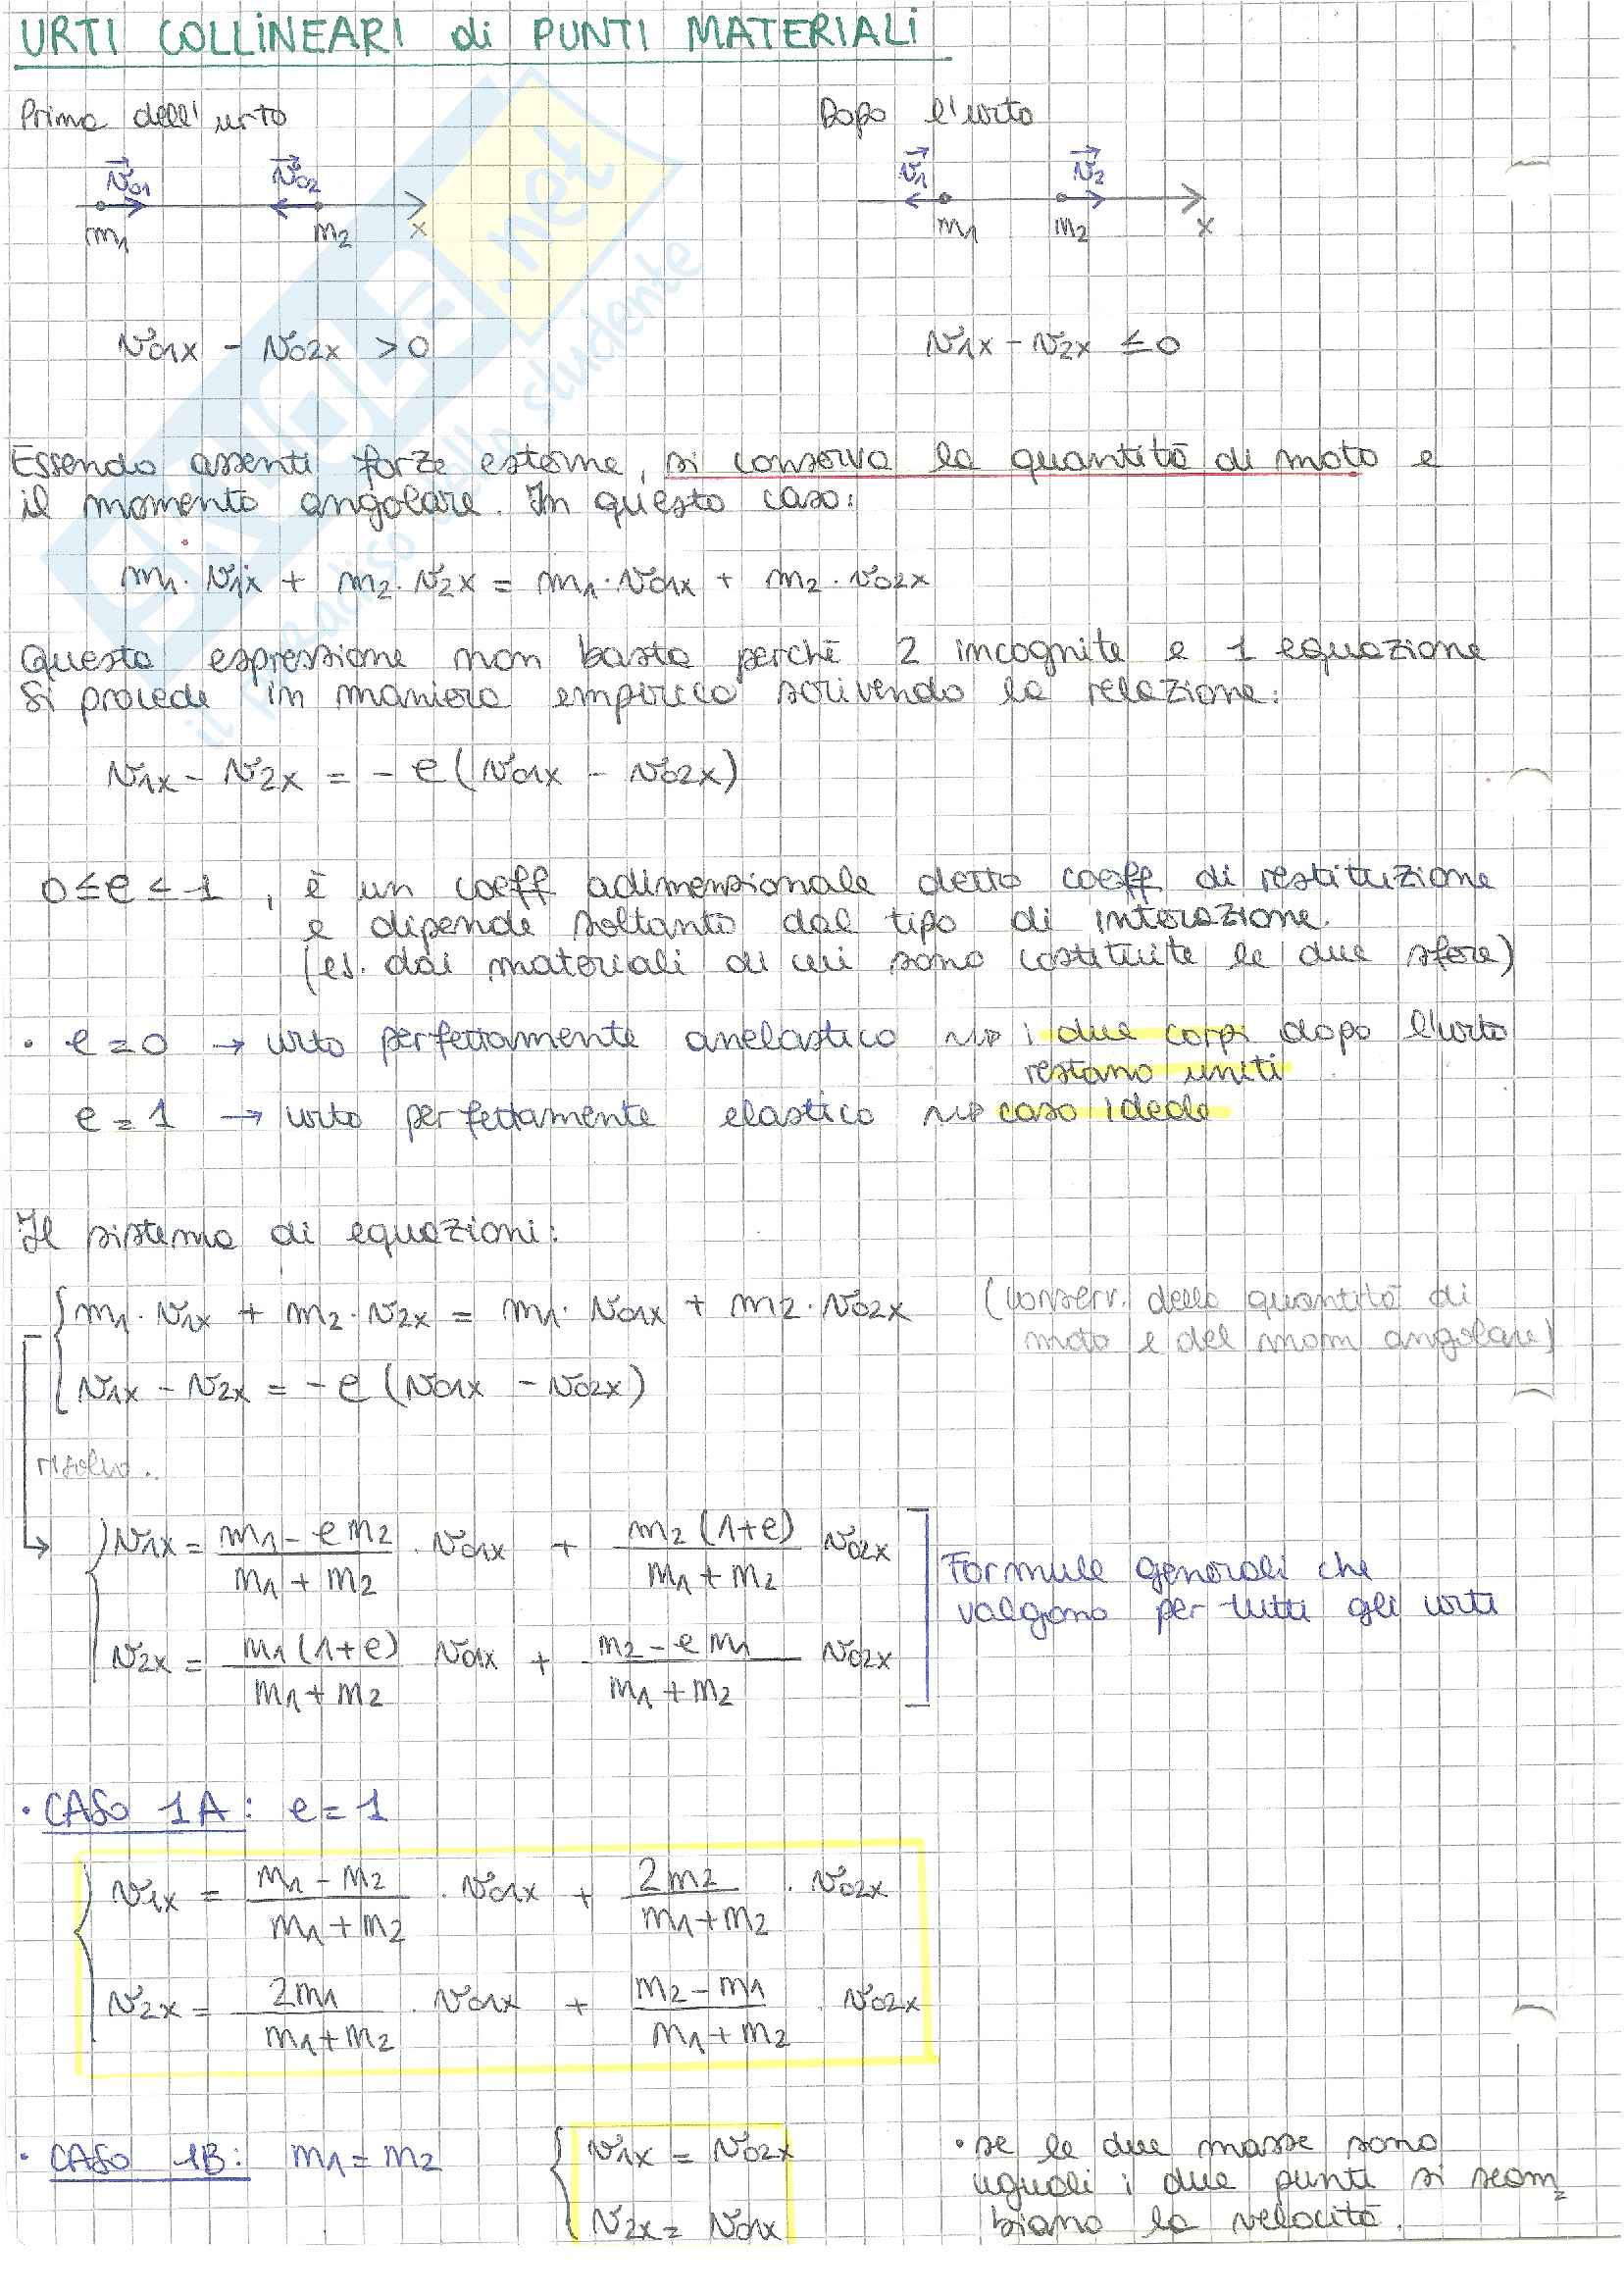 URTI COLLINEARI di PUNTI MATERIALI
Prima dell'urto
Dopo l'urto
v⃗01 v⃗02
v⃗1 v⃗2
m1 m2 x
m1 m2 x
v01x - v02x > 0
v1x - v2x ≤ 0
Essendo assenti forze esterne, si conserva la quantità di moto e
il momento angolare. In questo caso:
m1 · v1x + m2 · v2x = m1 · v01x + m2 · v02x
Questa espressione non basta perchè 2 incognite e 1 equazione
Si procede in maniera empirica scrivendo la relazione:
v1x - v2x = - e (v01x - v02x)
0 ≤ e ≤ 1 , è un coeff adimensionale detto coeff di restituzione
e dipende soltanto dal tipo di interazione.
(es. dai materiali di cui sono costituite le due sfere)
· e = 0 → urto perfettamente anelastico ⇝ i due corpi dopo l'urto
restano uniti
e = 1 → urto perfettamente elastico ⇝ caso ideale
Il sistema di equazioni:
{ m1 · v1x + m2 · v2x = m1 · v01x + m2 · v02x (conserv. della quantità di
moto e del mom angolare)
v1x - v2x = - e (v01x - v02x)
risolvo..
→ { v1x = (m1 - e m2)/(m1 + m2) · v01x + m2 (1+e)/(m1 + m2) v02x
v2x = m1 (1+e)/(m1 + m2) v01x + (m2 - e m1)/(m1 + m2) v02x
Formule generali che
valgono per tutti gli urti
· CASO 1A: e = 1
{ v1x = (m1 - m2)/(m1 + m2) · v01x + 2m2/(m1 + m2) · v02x
v2x = 2m1/(m1 + m2) · v01x + (m2 - m1)/(m1 + m2) · v02x
· CASO 1B: m1 = m2
{ v1x = v02x
v2x = v01x
· se le due masse sono
uguali i due punti si scam=
biano la velocità.
net
studente